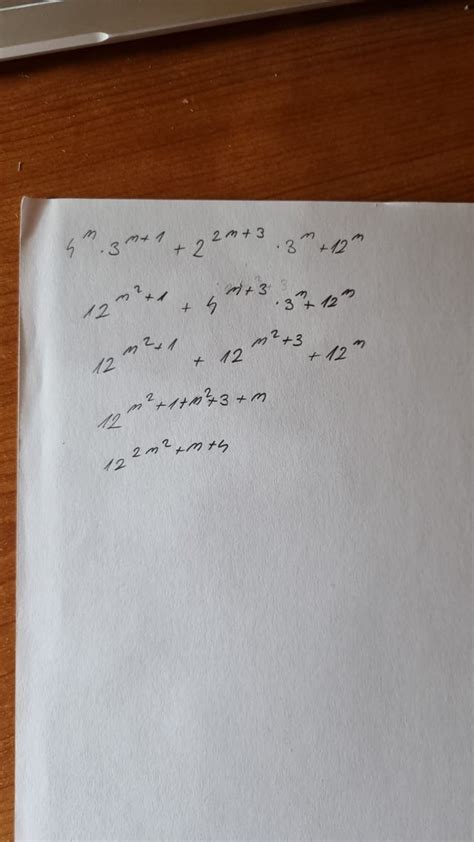 4^n · 3^{n+1} + 2^{2n+3} · 3^n + 12^n
12^{n^2+1} + 4^{n+3} · 3^n + 12^n
12^{n^2+1} + 12^{n^2+3} + 12^n
12^{n^2+1+n^2+3+n}
12^{2n^2+n+4}